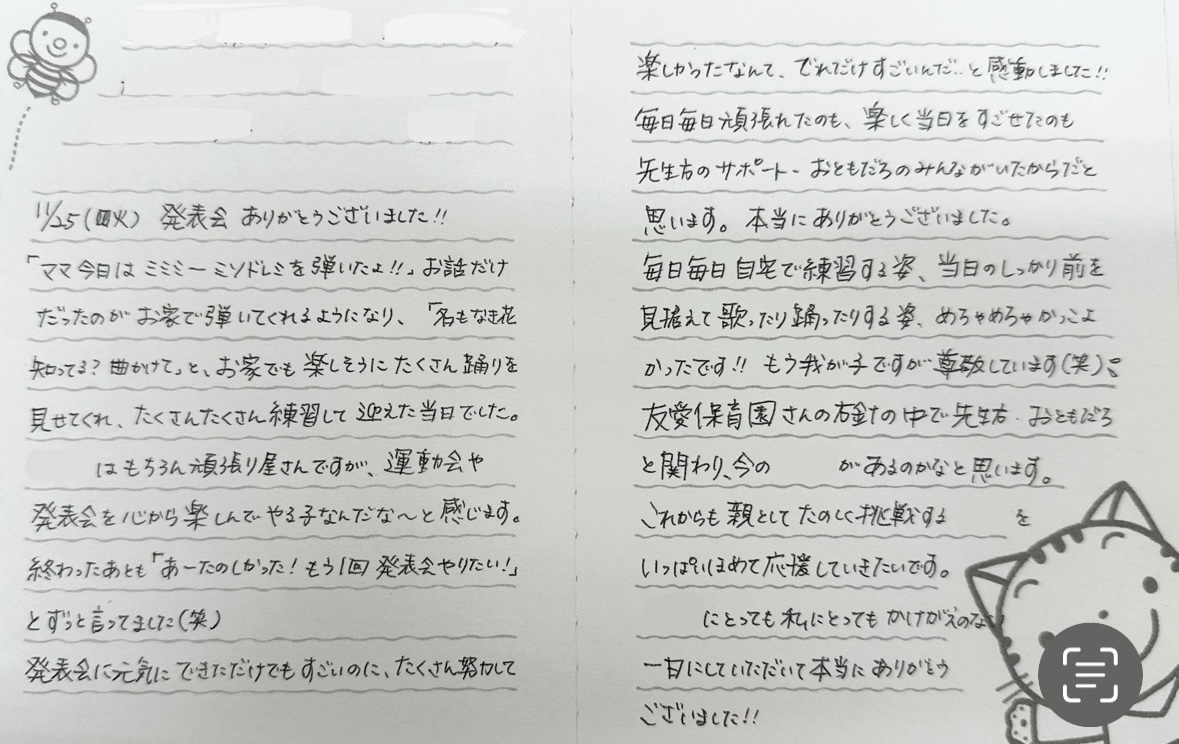 11/25(火) 発表会 ありがとうございました!!
「ママ今日は ミミミー ミソドレミを弾いたよ!!」お話だけ
だったのが お家で弾いてくれるようになり、「名もなき花
知ってる?曲かけて」と、お家でも楽しそうに たくさん踊りを
見せてくれ、たくさんたくさん練習して 迎えた当日でした。
はもちろん頑張り屋さんですが、運動会や
発表会を心から楽しんでやる子なんだな〜と感じます。
終わったあとも「あーたのしかった!もう1回 発表会やりたい!」
とずっと言ってました(笑)
発表会に元気に できただけでも すごいのに、たくさん努力して
楽しかったなんて、どれだけすごいんだ..と感動しました!!
毎日毎日頑張れたのも、楽しく当日をすごせたのも
先生方のサポート・おともだちのみんながいたからだと
思います。本当にありがとうございました。
毎日毎日 自宅で練習する姿、当日のしっかり前を
見据えて歌ったり踊ったりする姿、めちゃめちゃかっこよ
かったです!! もう我が子ですが尊敬しています(笑)
友愛保育園さんの方針の中で先生方・おともだち
と関わり、今の があるのかなと思います。
これからも 親として たのしく挑戦する を
いっぱいほめて応援していきたいです。
にとっても 私にとっても かけがえのない
一日にしていただいて本当に ありがとう
ございました!!